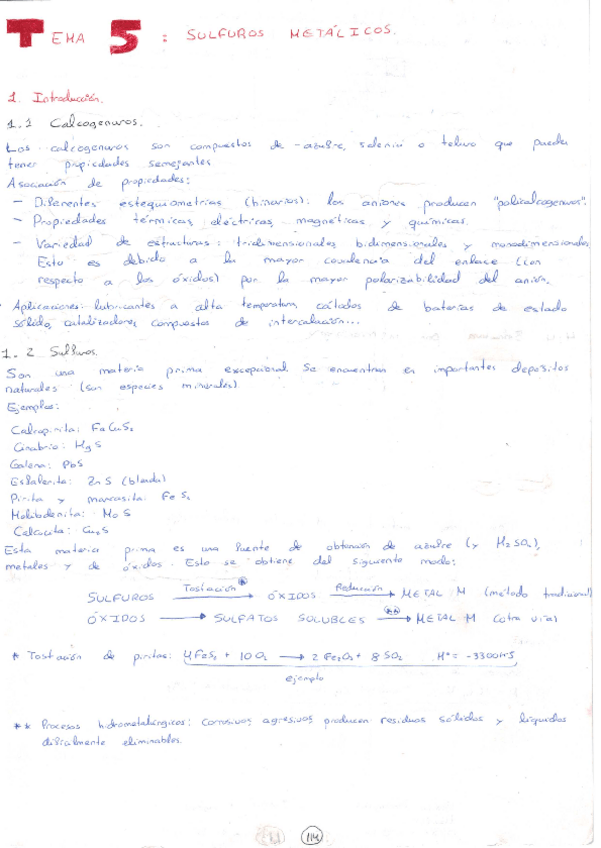 TEMA 5: SULFUROS METÁLICOS.
1. Introducción.
1.1 Calcogenuros.
Los calcogenuros son compuestos de -azufre, selenio o teluro que pueden
tener propiedades semejantes
Asociación de propiedades:
- Diferentes estequiometrias (binarios): los aniones producen "policalcogenuros".
- Propiedades térmicas, eléctricas, magnéticas y químicas.
- Variedad de estructuras: tridimensionales, bidimensionales y monodimensionales
Esto es debido a la mayor covalencia del enlace (con
respecto a los óxidos) por la mayor polarizabilidad del anión.
Aplicaciones: lubricantes a alta temperatura, cátodos de baterías de estado
sólido, catalizadores, compuestos de intercalación...
1.2 Sulfuros.
Son una materia prima excepcional. Se encuentran en importantes depositos
naturales (son especies minerales)
Ejemplos:
Calcopirita: FeCuS2
Cinabrio: HgS
Galena: PbS
Esfalerita: ZnS (blenda)
Pirita y marcasita: FeS2
Molibdenita: MoS
Calcocita: Cu2S
Esta materia prima es una fuente de obtención de azufre (y H2SO4),
metales y de óxidos. Esto se obtiene del siguiente modo:
SULFUROS Tostación* → ÓXIDOS Reducción → METAL M (método tradicional)
ÓXIDOS → SULFATOS SOLUBLES ** → METAL M (otra vía)
* Tostación de piritas: 4FeS2 + 10O2 → 2Fe2O3 + 8SO2 Hº = -3300KJ
ejemplo
** Procesos hidrometalúrgicos: corrosivos, agresivos, producen residuos sólidos y líquidos
dificilmente eliminables.
114